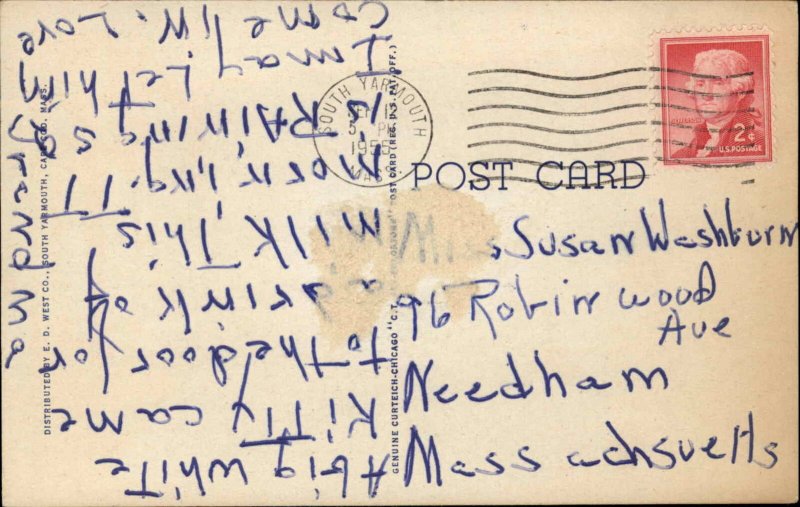 A big white
Kitty came
to the door for
a drink of
milk This
morning. IT
is RAINING
I may Let him
come IN. Love
Grandma
POST CARD
Miss Susan Washburn
96 Robin wood
Ave
Needham
Massachsuetts
SOUTH YARMOUTH
PM
1955
MASS
2¢
U.S. POSTAGE
DISTRIBUTED BY E. D. WEST CO., SOUTH YARMOUTH, CAPE COD, MASS.
GENUINE CURTEICH-CHICAGO "C.T. POST CARD (REG. U.S. PAT. OFF.)